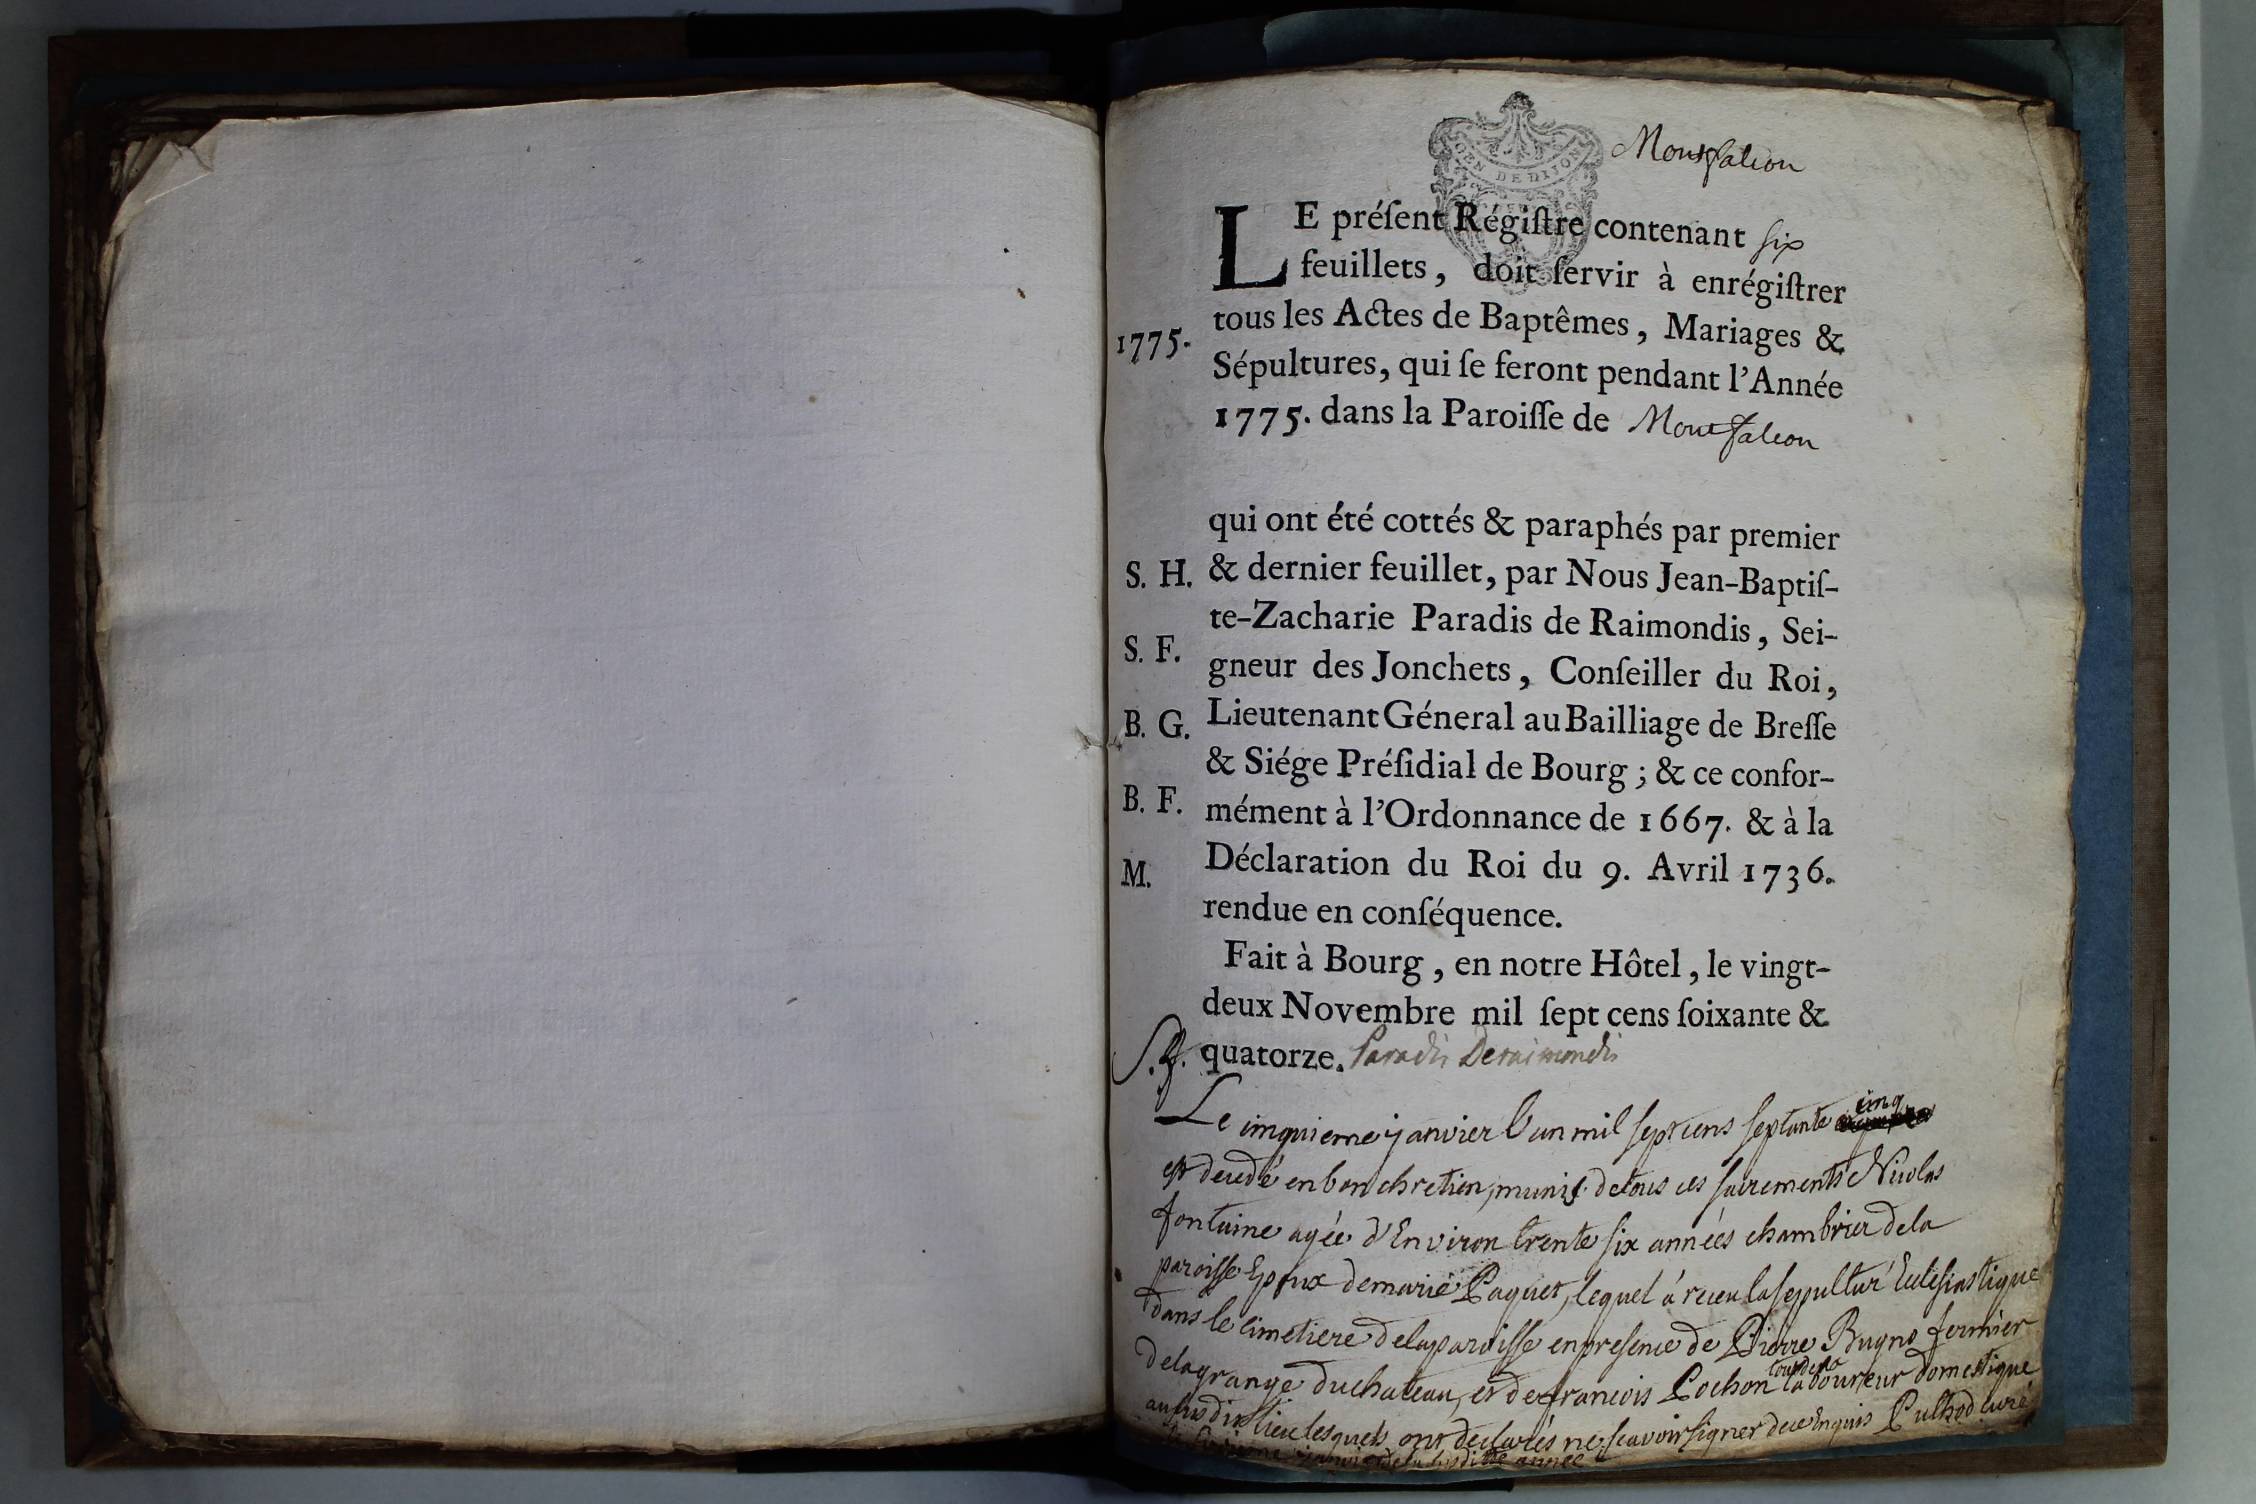 GEN DE DIJON
Montfalcon
LE préſent Régiſtre contenant six
feuillets, doit ſervir à enrégiſtrer
tous les Actes de Baptêmes, Mariages &
1775.
Sépultures, qui ſe feront pendant l'Année
1775. dans la Paroiſſe de Montfalcon
qui ont été cottés & paraphés par premier
S. H. & dernier feuillet, par Nous Jean-Baptiſ-
te-Zacharie Paradis de Raimondis, Sei-
S. F. gneur des Jonchets, Conſeiller du Roi,
B. G. Lieutenant Géneral au Bailliage de Breſſe
& Siége Préſidial de Bourg; & ce confor-
B. F. mément à l'Ordonnance de 1667. & à la
M. Déclaration du Roi du 9. Avril 1736.
rendue en conſéquence.
Fait à Bourg, en notre Hôtel, le vingt-
deux Novembre mil ſept cens ſoixante &
S. f. quatorze. Paradis Deraimondis
Le cinquieme janvier l'an mil sept cens septante cinq
est decedé en bon chretien, munis de tous ces sacrements Nicolas
fontaine agée d'Environ trente six années chambrier de la
paroisse Epoux de marie Paquet, lequel á receu la sepultur Eclesiastique
dans le cimetiere de la paroisse en presence de Pierre Rugno fermier
de la grange du chateau, et de francois Pochon laboureur domestique
au sus dit lieu lesquels ont declarés ne scavoir signer de ce Enquis Puthod curé
janvier de la sus ditte année